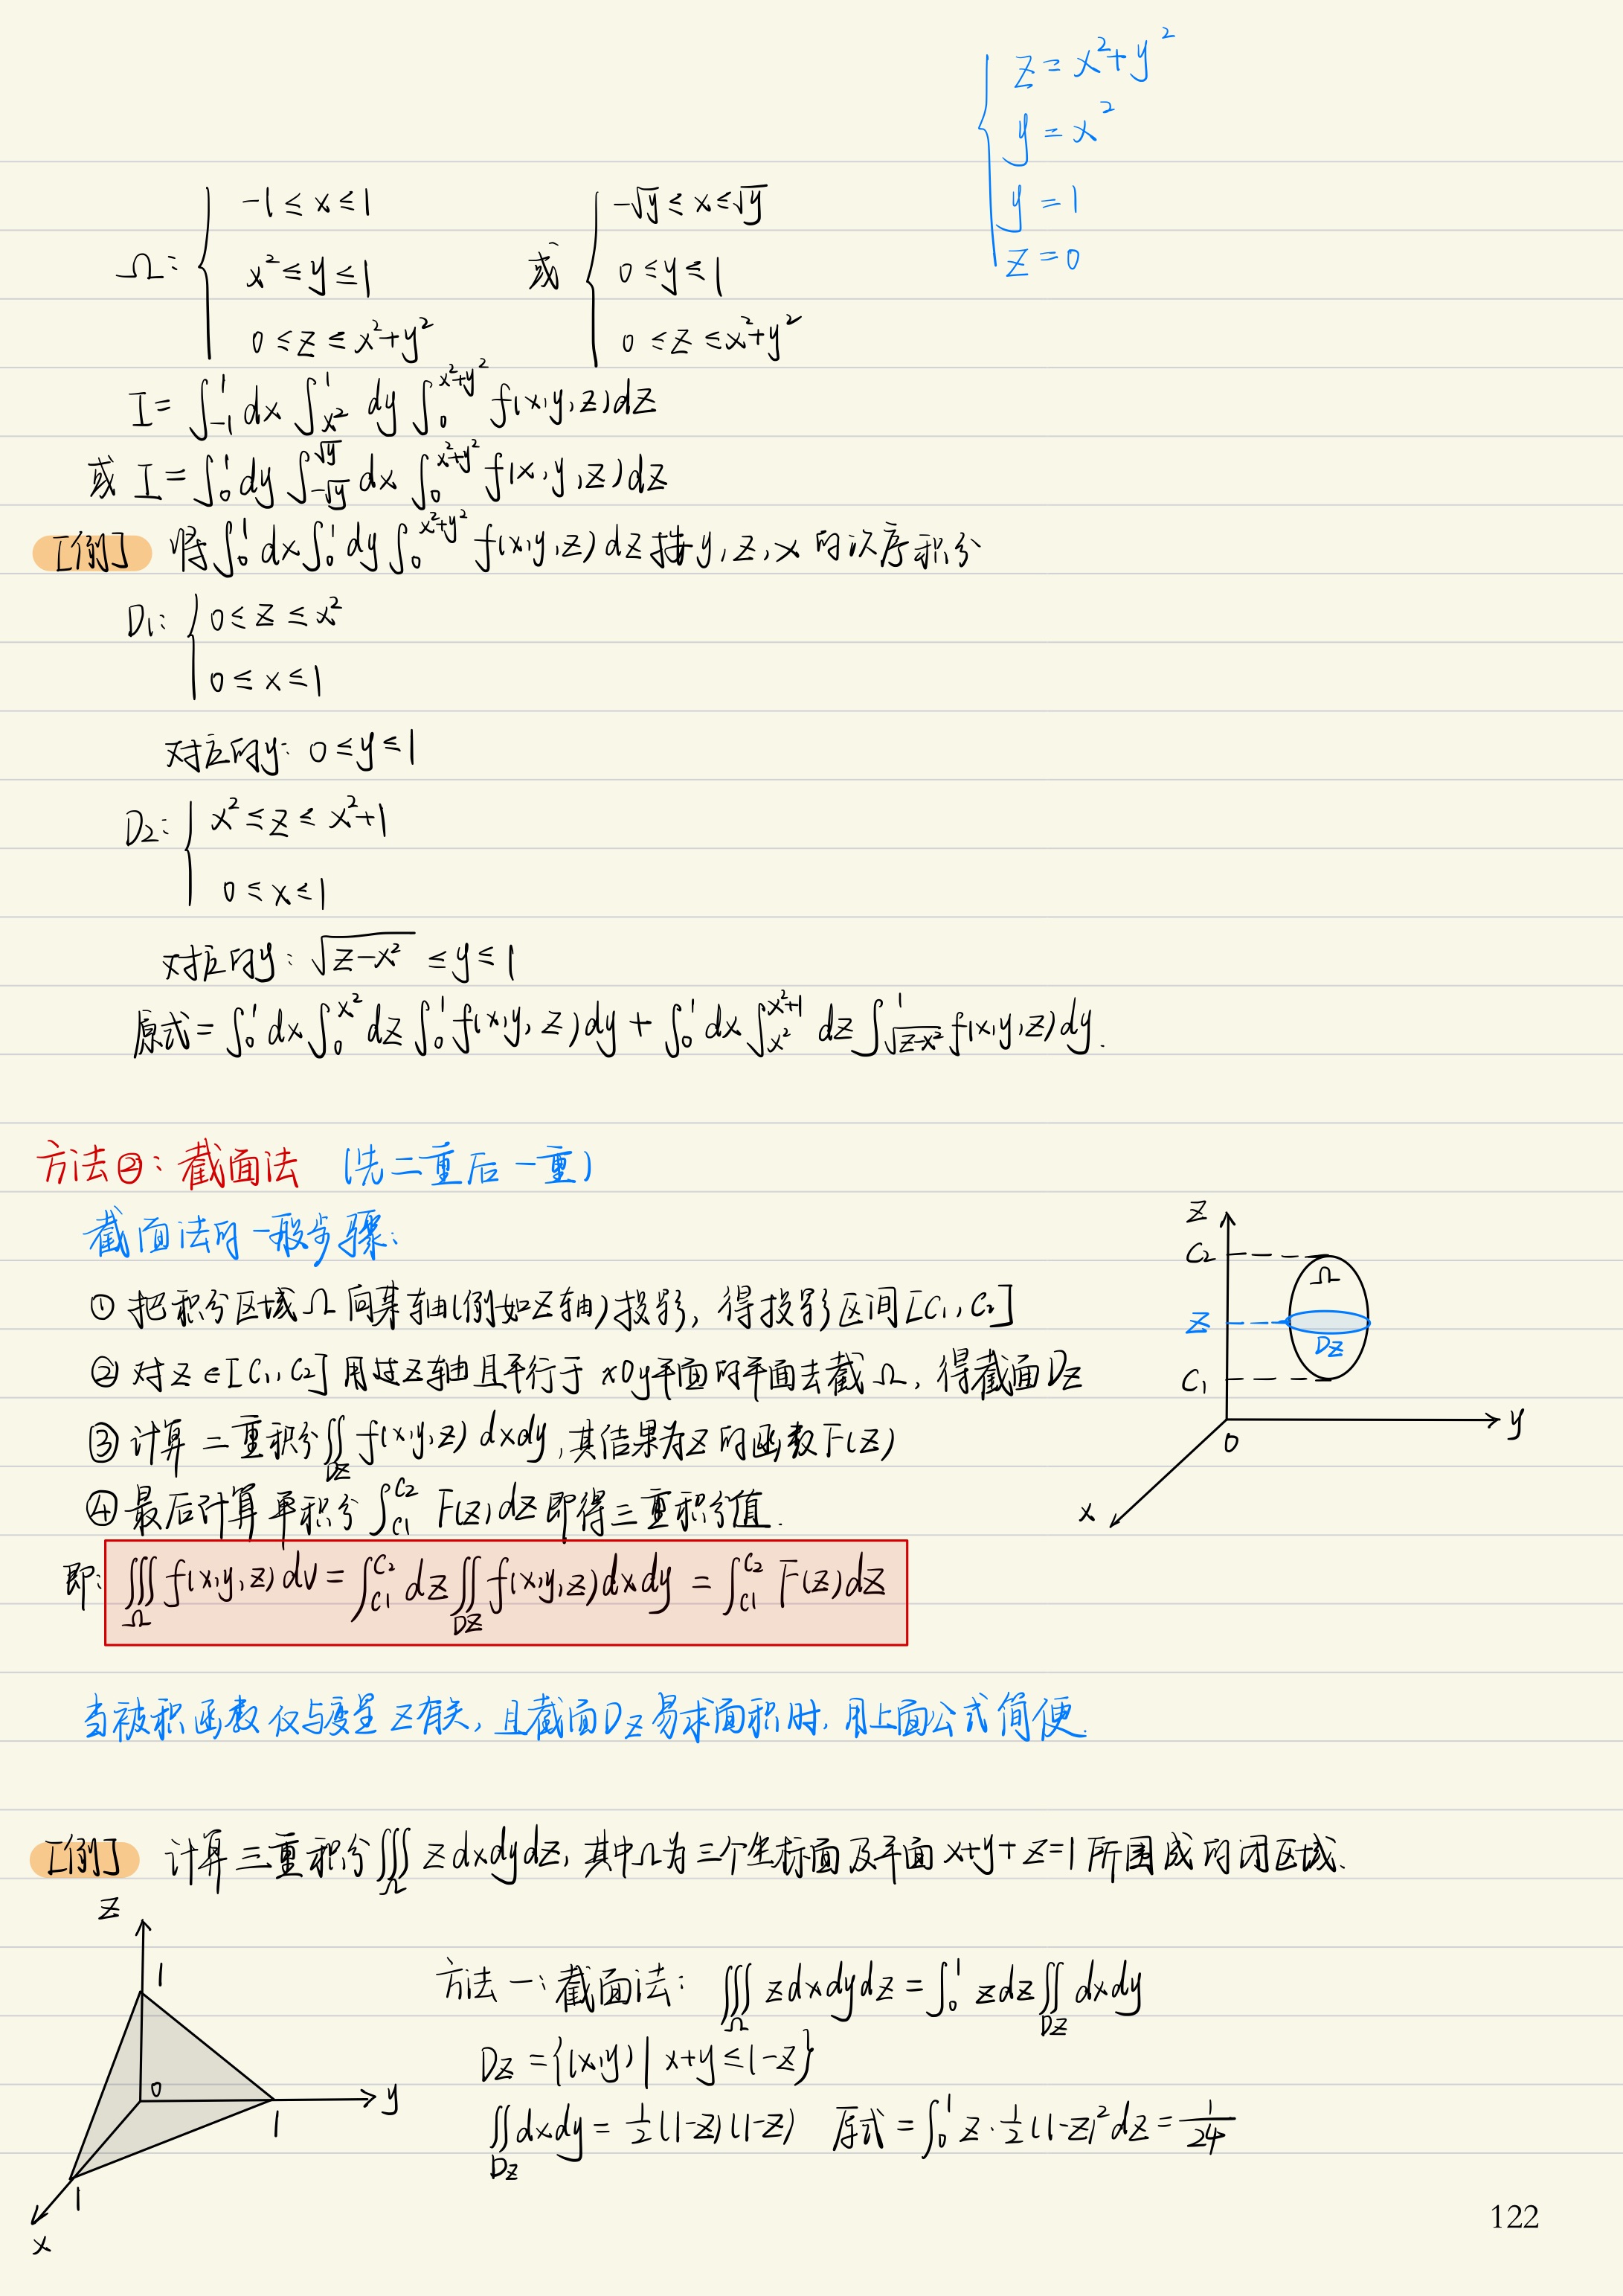 z=x²+y²
y=x²
y=1
z=0
Ω: { -1≤x≤1 或 { -√y≤x≤√y
x²≤y≤1 0≤y≤1
0≤z≤x²+y² 0≤z≤x²+y²
I=∫₋₁¹dx∫_{x²}^{1}dy∫₀^{x²+y²}f(x,y,z)dz
或 I=∫₀¹dy∫_{-√y}^{√y}dx∫₀^{x²+y²}f(x,y,z)dz
[例] 将∫₀¹dx∫₀¹dy∫₀^{x²+y²}f(x,y,z)dz按y,z,x的次序积分
D₁: { 0≤z≤x²
0≤x≤1
对应的y: 0≤y≤1
D₂: { x²≤z≤x²+1
0≤x≤1
对应的y: √(z-x²)≤y≤1
原式=∫₀¹dx∫₀^{x²}dz∫₀¹f(x,y,z)dy+∫₀¹dx∫_{x²}^{x²+1}dz∫_{√(z-x²)}^{1}f(x,y,z)dy.
方法②: 截面法 (先二重后一重)
截面法的一般步骤:
①把积分区域Ω向某轴(例如z轴)投影, 得投影区间[C₁,C₂]
②对z∈[C₁,C₂]用过z轴且平行于xOy平面的平面去截Ω, 得截面Dz
③计算二重积分∬_{Dz}f(x,y,z)dxdy,其结果为z的函数F(z)
④最后计算单积分∫_{C1}^{C2}F(z)dz即得三重积分值.
即: ∭_Ω f(x,y,z)dv=∫_{C1}^{C2}dz∬_{Dz}f(x,y,z)dxdy=∫_{C1}^{C2}F(z)dz
z
C₂
Ω
z
Dz
C₁
0
y
x
当被积函数仅与变量z有关, 且截面Dz易求面积时, 用上面公式简便.
[例] 计算三重积分∭_Ω zdxdydz, 其中Ω为三个坐标面及平面x+y+z=1所围成的闭区域.
z
1
0
1
y
1
x
方法一: 截面法: ∭_Ω zdxdydz=∫₀¹zdz∬_{Dz}dxdy
Dz={(x,y)|x+y≤1-z}
∬_{Dz}dxdy=½(1-z)(1-z) 原式=∫₀¹z·½(1-z)²dz=1/24
122